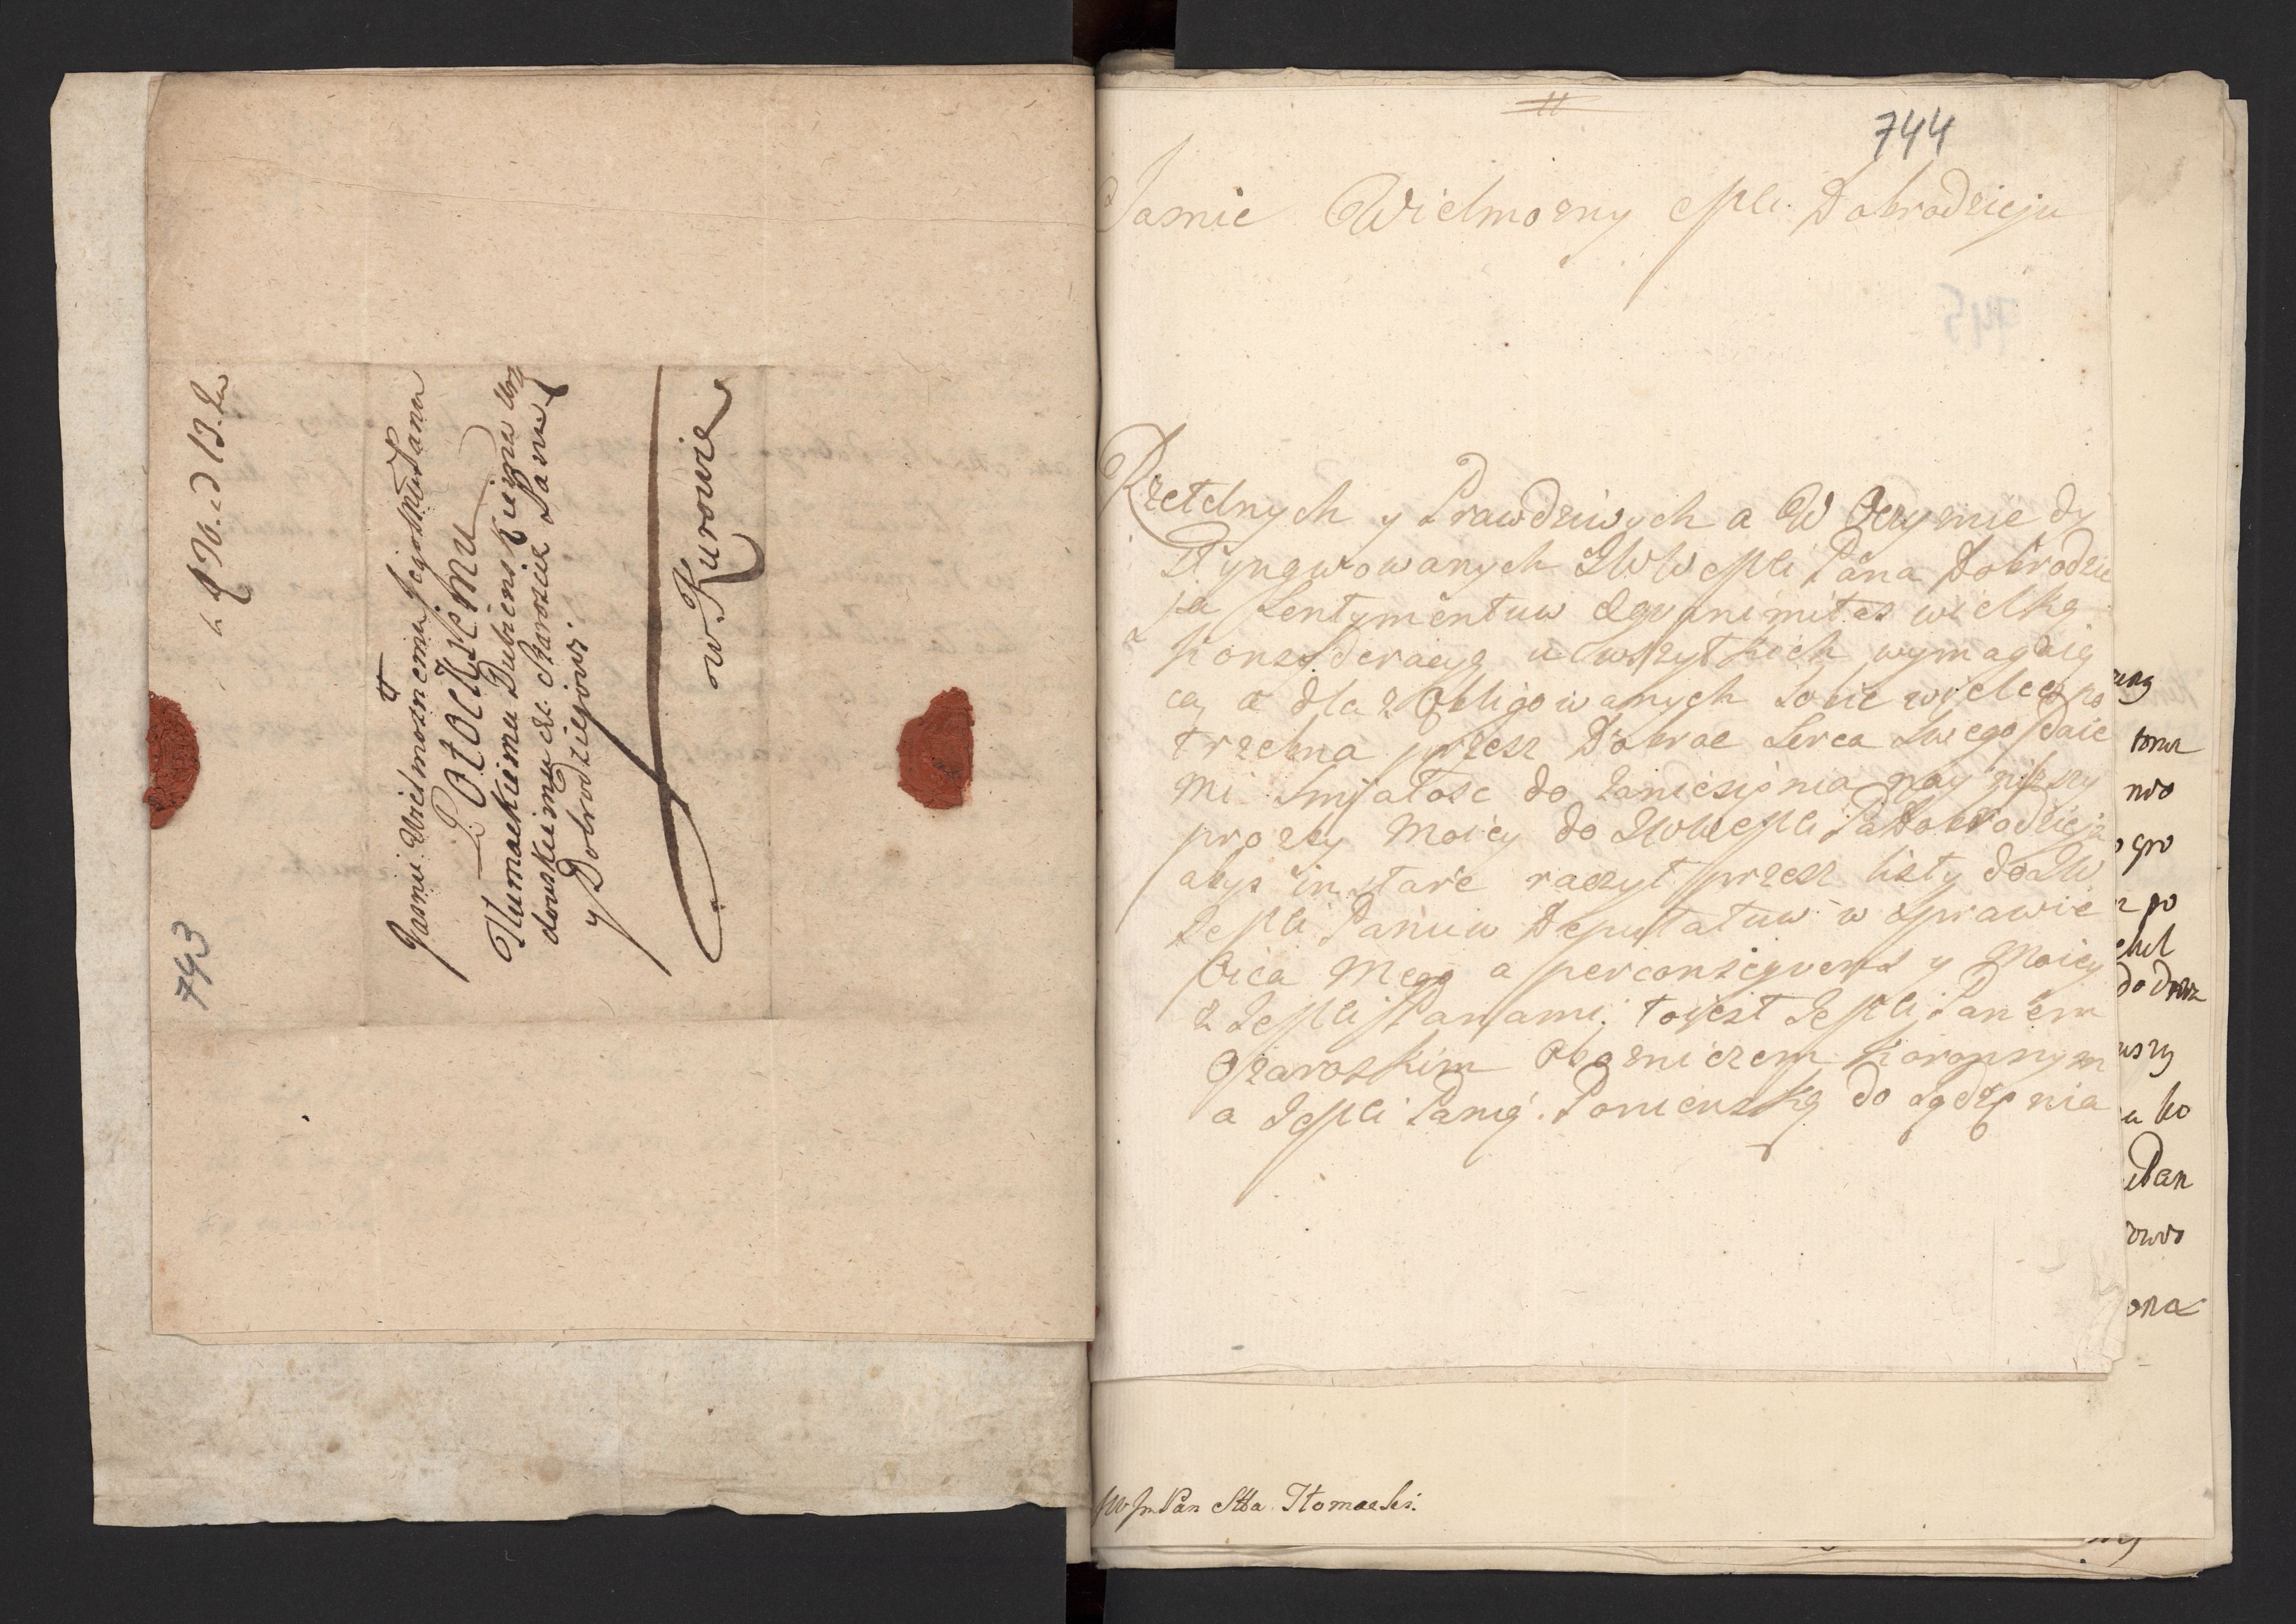 743
Jasnie Wielmoznemu Jegomści Panu
Potockiemu
Tlumackiemu Dubienskiemu
dowskiemu etc. Staroscie Panu
y Dobrodziejowi
w Kurowie
744
Jasnie Wielmozny Mci Dobrodzieju
Rzetelnych y Prawdziwych a W Oyczyznie dy
styngwowanych JWW Mci Pana Dobrodzie
ja Sentymentuw wielką
Konsyderacyą u wszytkich wymagaią
ca, a dla zobligowanych sobie wielce po
trzebna przesz Dobroc Serca Swego daie
mi Smiałosc do zaniesienia nayniższy
prozby Moiey do JWW Mci Pa Dobrodzieja
abys instare raczył przesz listy do JW
Ic Mci Panuw Deputatuw w sprawie
Oica Mego a perconsequens y Moiey
z Ic Mci Panami, to jest Ic Mci Panem
Ożaroskim Oboznieczem Koronnym
a Ic Mci Panią Ponienską do sądzenia
JW Jm Pan Stta Tłomacki.